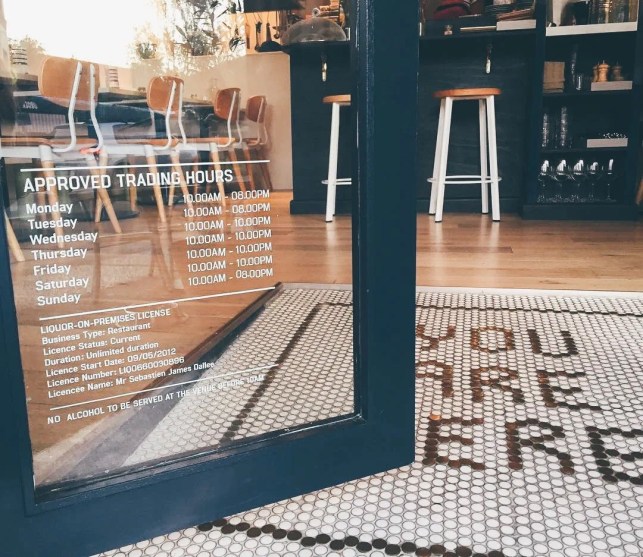 APPROVED TRADING HOURS
Monday 10.00AM - 08.00PM
Tuesday 10.00AM - 08.00PM
Wednesday 10.00AM - 10.00PM
Thursday 10.00AM - 10.00PM
Friday 10.00AM - 10.00PM
Saturday 10.00AM - 10.00PM
Sunday 10.00AM - 08.00PM
LIQUOR-ON-PREMISES LICENSE
Business Type: Restaurant
Licence Status: Current
Duration: Unlimited duration
Licence Start Date: 09/05/2012
Licence Number:
Licencee Name: Mr Sebastien James Dallee
NO ALCOHOL TO BE SERVED AT THE VENUE BEFORE 10AM
YOU
ARE
ERE